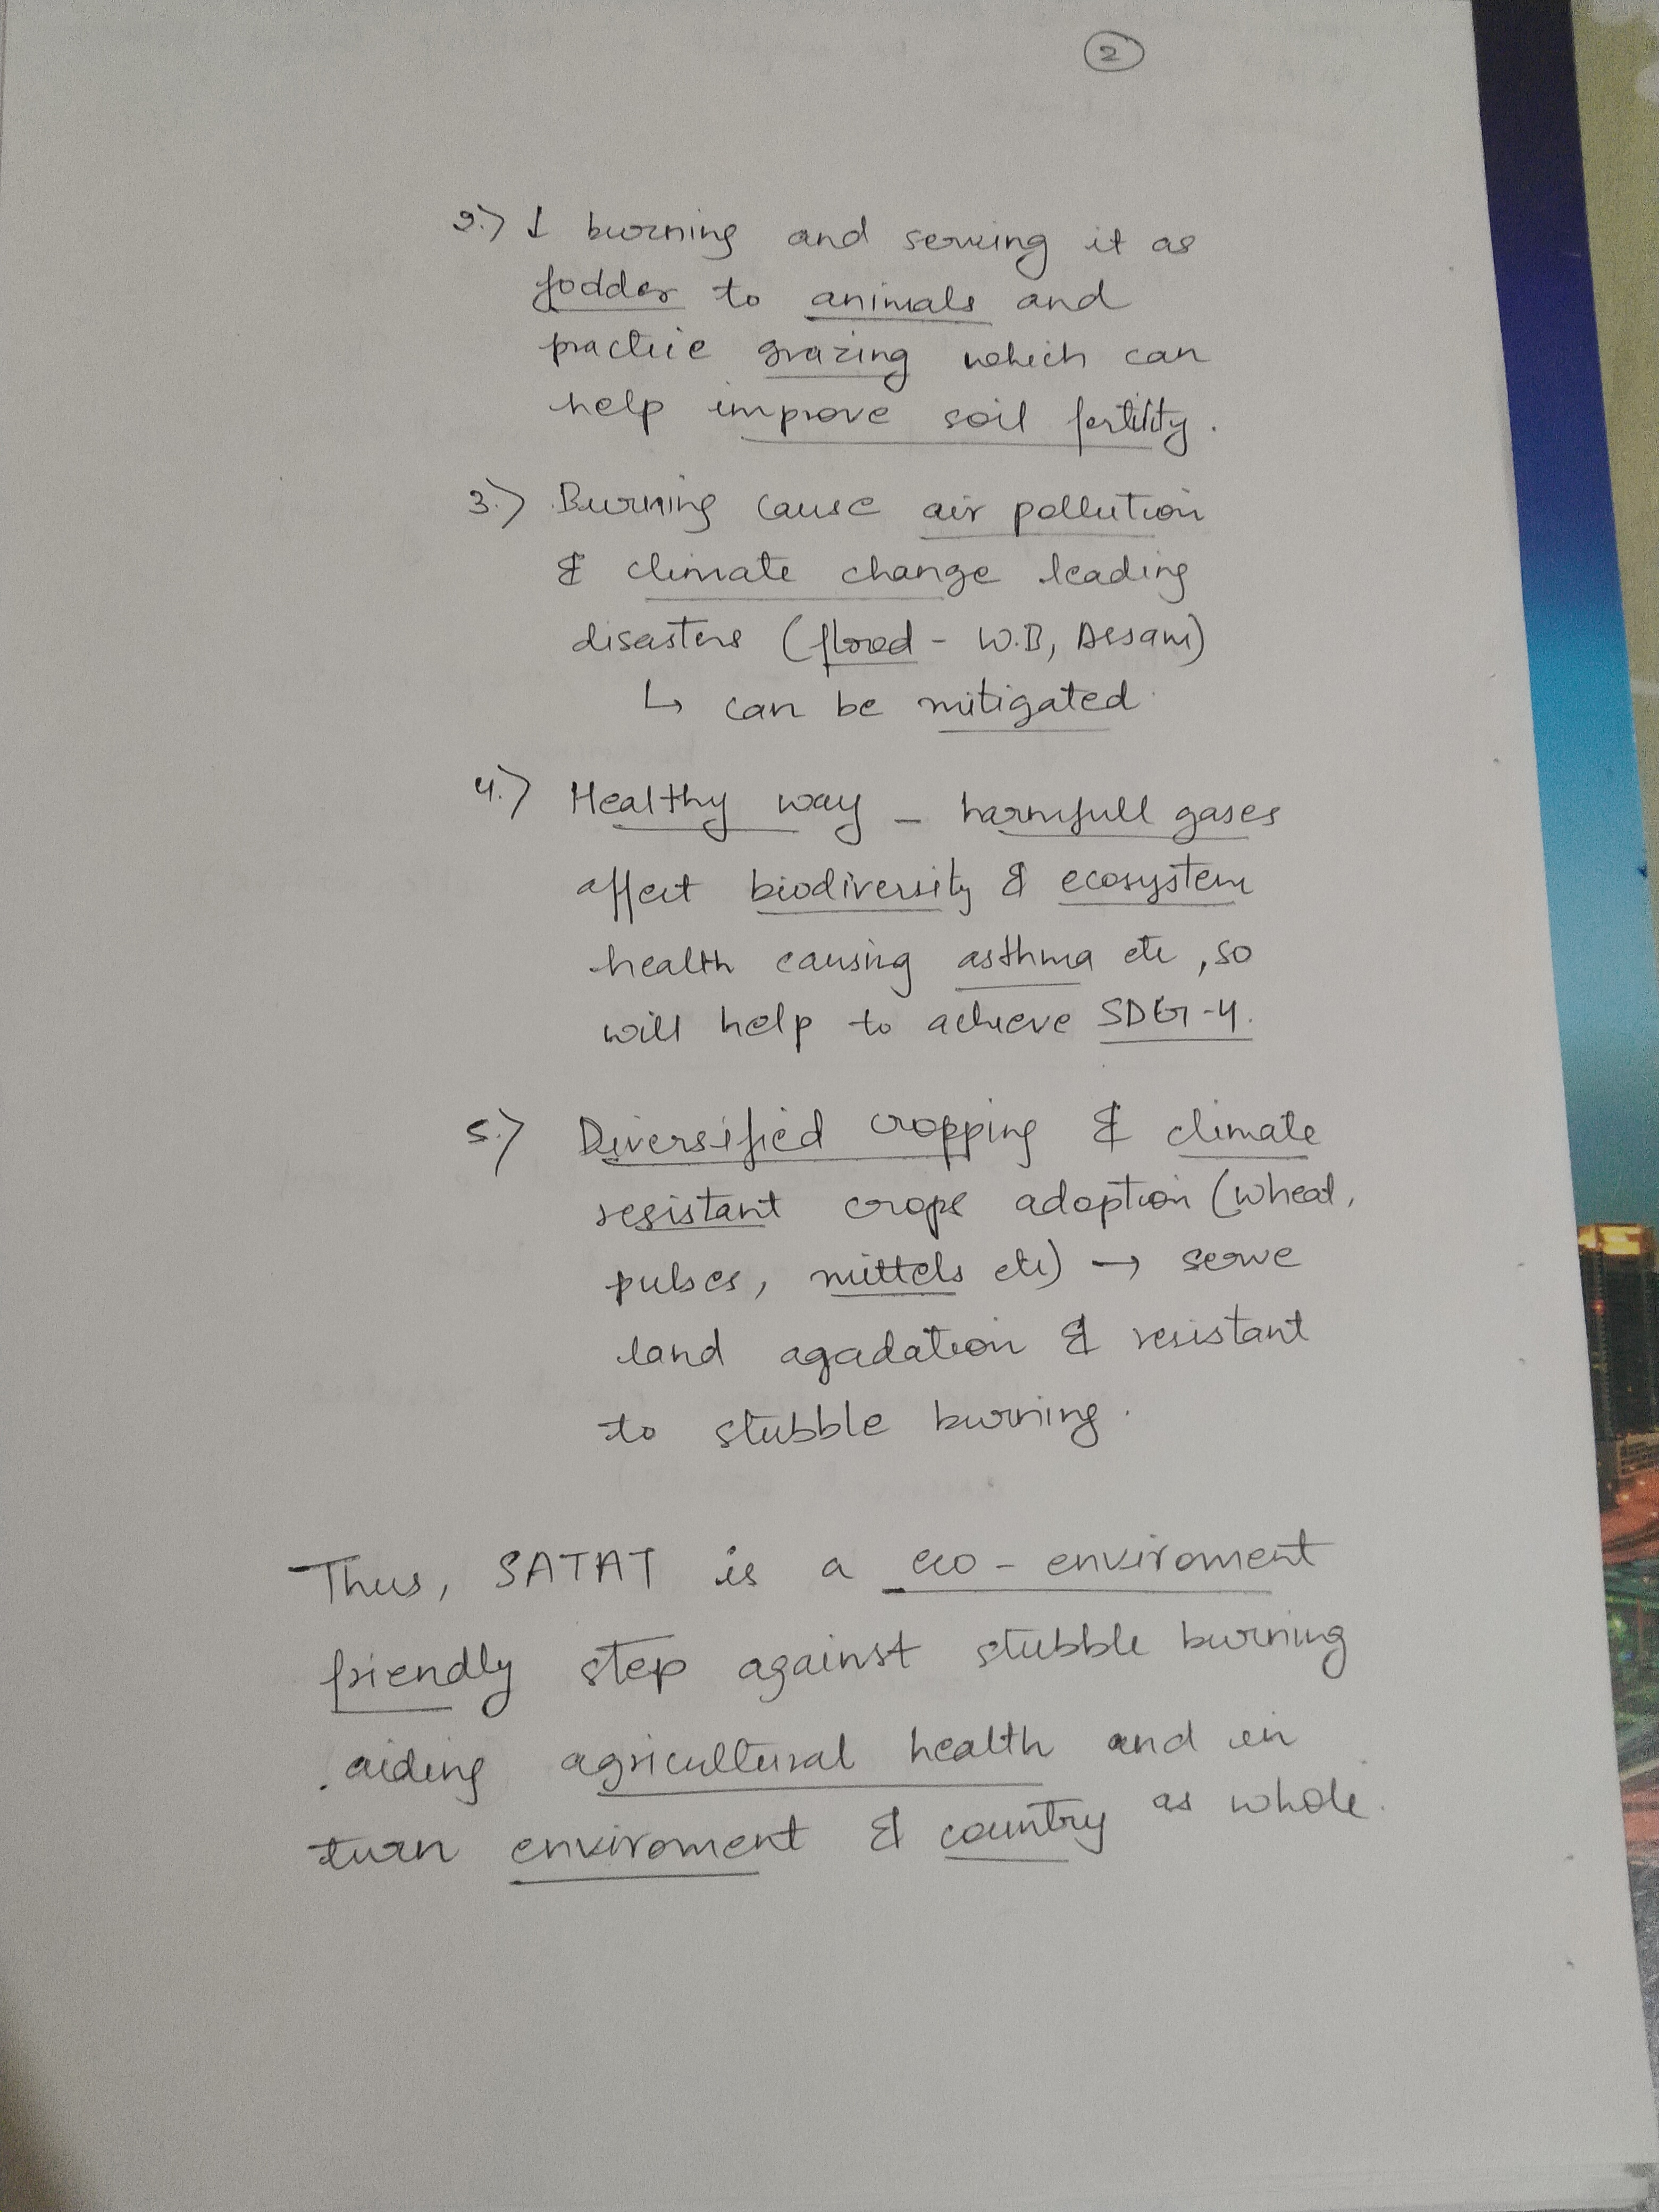 2
2.) ↓ burning and serving it as
fodder to animals and
practice grazing which can
help improve soil fertility.
3.) Burning cause air pollution
& climate change leading
disasters (flood - W.B, Assam)
↳ can be mitigated
4.) Healthy way - harmfull gases
affect biodiversity & ecosystem
health causing asthma etc, so
will help to achieve SDG-4.
5.) Diversified cropping & climate
resistant crops adoption (wheat,
pulses, mittels etc) → serve
land agadation & resistant
to stubble burning.
Thus, SATAT is a eco-enviroment
friendly step against stubble burning
aiding agricultural health and in
turn enviroment & country as whole.